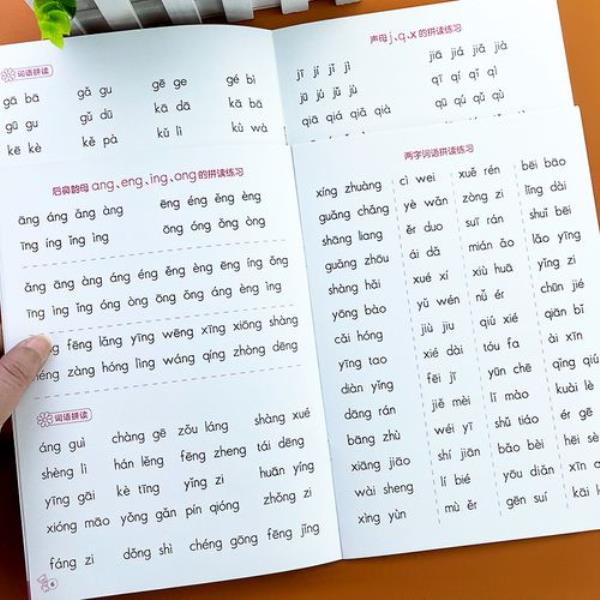 词语拼读
gā bā gǎ gu gē ge gé bì
gū gu gǔ dū kā dā kā bā
kē kè kě pà kǔ lì kù wà
声母j、q、x的拼读练习
jī jí jǐ jì jiā jiá jiǎ jià
jū jú jǔ jù qī qí qǐ qì
qiā qiá qiǎ qià qū qú qǔ qù
后鼻韵母ang、eng、ing、ong的拼读练习
āng áng ǎng àng ēng éng ěng èng
īng íng ǐng ìng ōng óng ǒng òng
ǎng āng àng áng éng ěng èng ēng íng ǒng
īng ìng ǐng óng òng ōng ǒng áng èng ìng
fēng lǎng yīng wēng xīng xiōng shàng
zàng hóng lìng wáng qíng zhòng dēng
词语拼读
áng guì chàng gē zǒu láng shàng xué
shèng lì hán lěng fēng zheng tái dēng
yīng gāi kè tīng yǐng zi huān yíng
xióng māo yǒng gǎn pín qióng zhǒng zi
fáng zi dǒng shì chéng gōng fēng jǐng
6
两字词语拼读练习
xíng zhuàng cì wei xuě rén bēi bāo
guǎng chǎng yè wǎn zòng zi líng dài
shāng liang ěr duo suī rán shuǐ bēi
guǎng zhōu ái dǎ mián ǎo lǎo yīng
shàng hǎi xué xí xiù huā yǐng zi
yōng bào yǔ wén nǚ ér chūn jié
cǎi hóng jiù jiu qiú xié qiān bǐ
yīng tao xié dài tóu fa ài xīn
diàn yǐng fēi jī yūn chē qīng qiú
dāng rán jiě mèi lǐ mào kuài lè
bāng zhù wéi yī shǔ tiáo ér gē
xiāng jiāo shí jiān bǎo bèi hēi sè
wài sheng lí bié yōu diǎn xīn
xìng yùn mù ěr gēn suí kāi